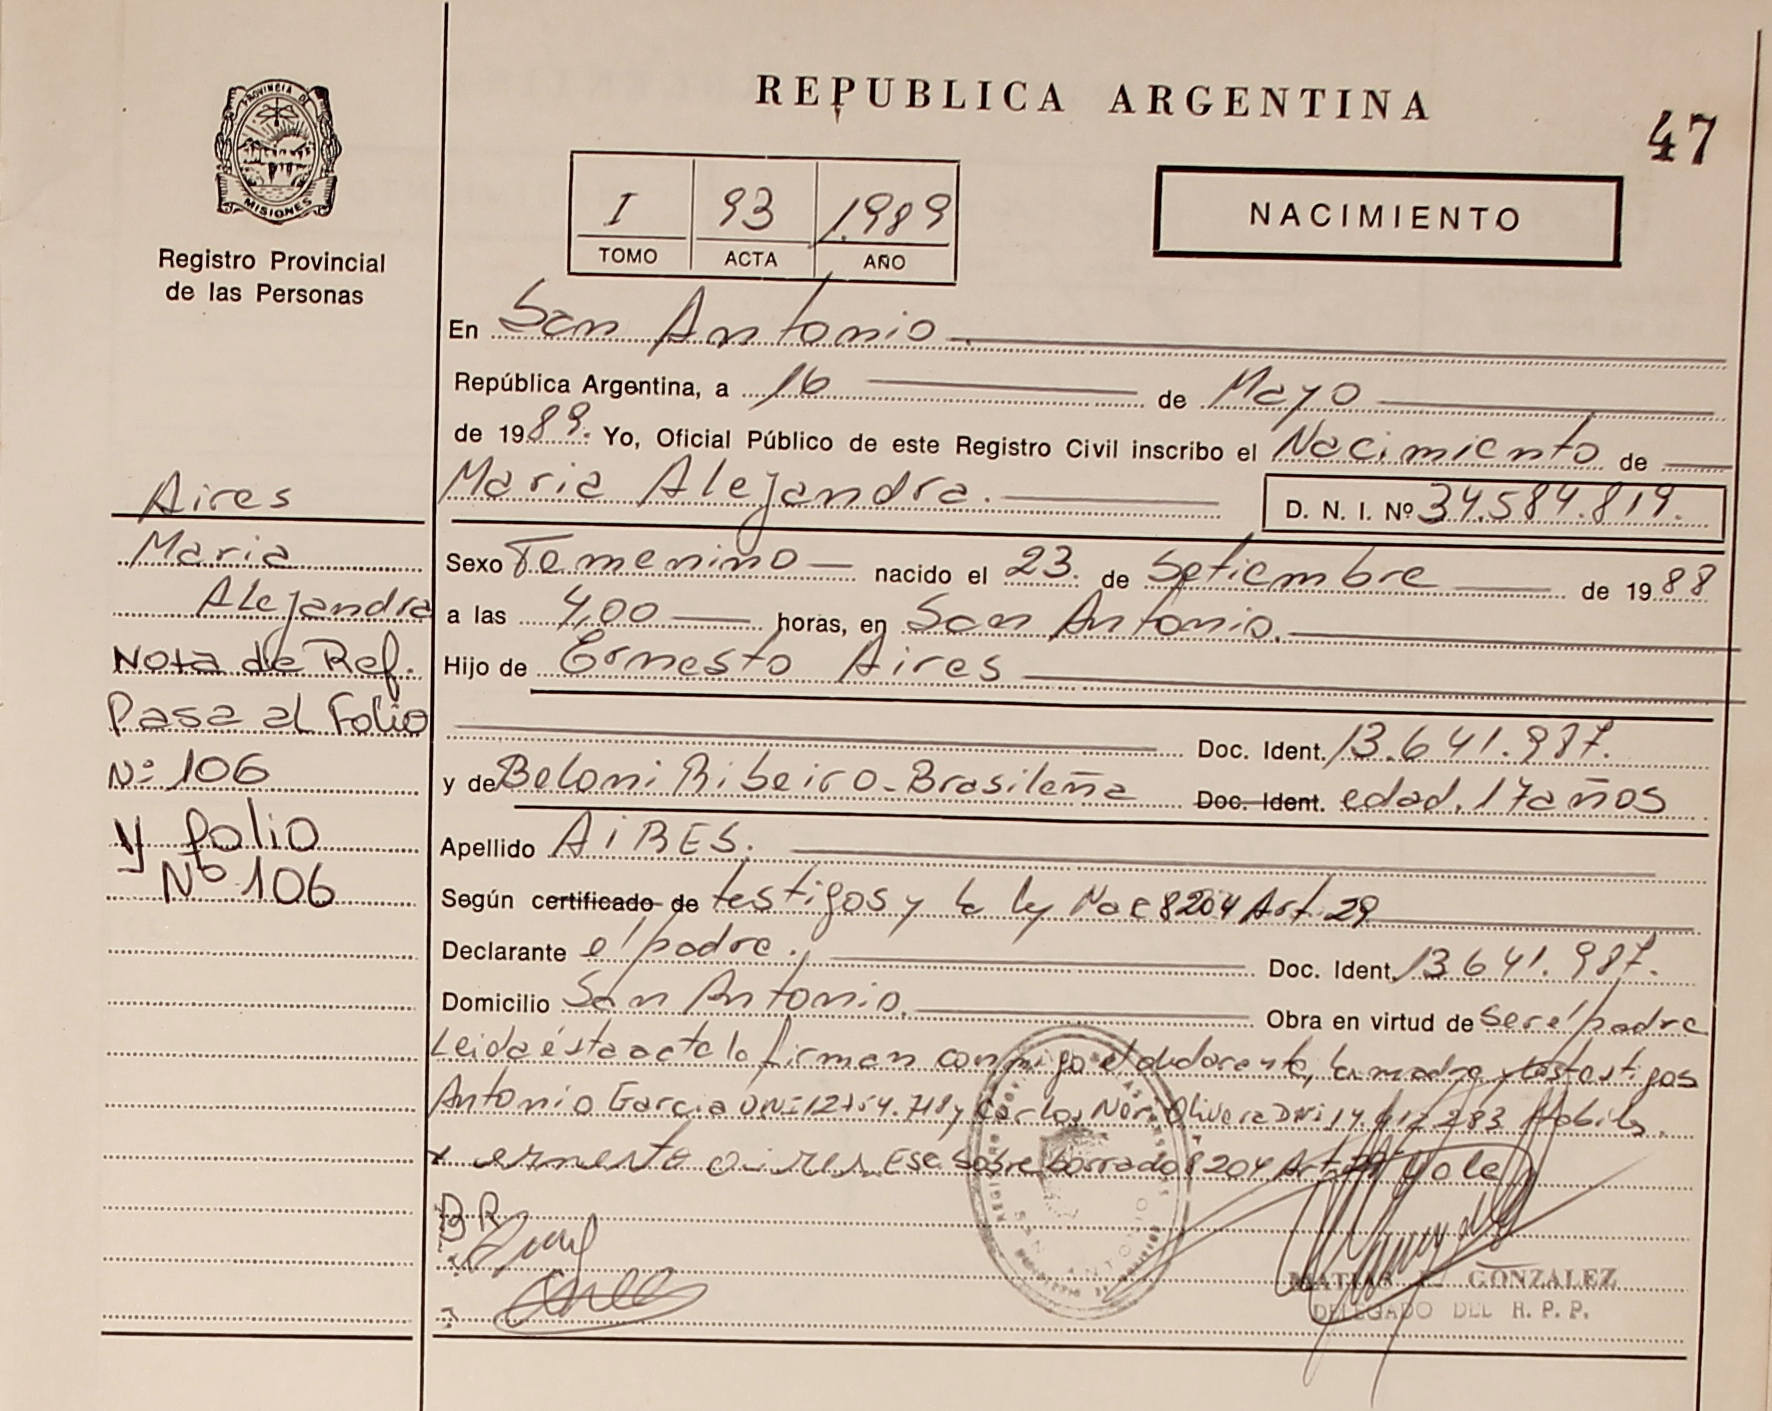 REPUBLICA ARGENTINA
47
PROVINCIA DE
MISIONES
Registro Provincial
de las Personas
I 93 1.989
TOMO ACTA AÑO
NACIMIENTO
En San Antonio.
República Argentina, a 16 de Mayo
de 1989. Yo, Oficial Público de este Registro Civil inscribo el Nacimiento de
Maria Alejandra. D. N. I. Nº 34.584.819.
Sexo Femenino nacido el 23. de Setiembre de 1988
a las 4,00 horas, en San Antonio.
Hijo de Ernesto Aires
Doc. Ident. 13.641.987.
y de Beloni Ribeiro-Brasileña Doc. Ident. edad. 17 años
Apellido AiRES.
Según certificado de testigos y la ley Nac 8204 Art. 29
Declarante el padre. Doc. Ident. 13641.987.
Domicilio San Antonio. Obra en virtud de ser el padre
Leida ésta acta la firman conmigo el declarante, la madre y los testigos
Antonio Garcia DNi 12754.718 y Carlos Olivera Dni 14.612.283 Habiles.
x ernesto aires Ese Sobre borrado 8204 Art. 29 Vale
B R
MATIAS GONZALEZ
DELEGADO DEL R. P. P.
Aires
Maria
Alejandra
Nota de Ref.
Pasa al Folio
Nº 106
y folio
Nº 106